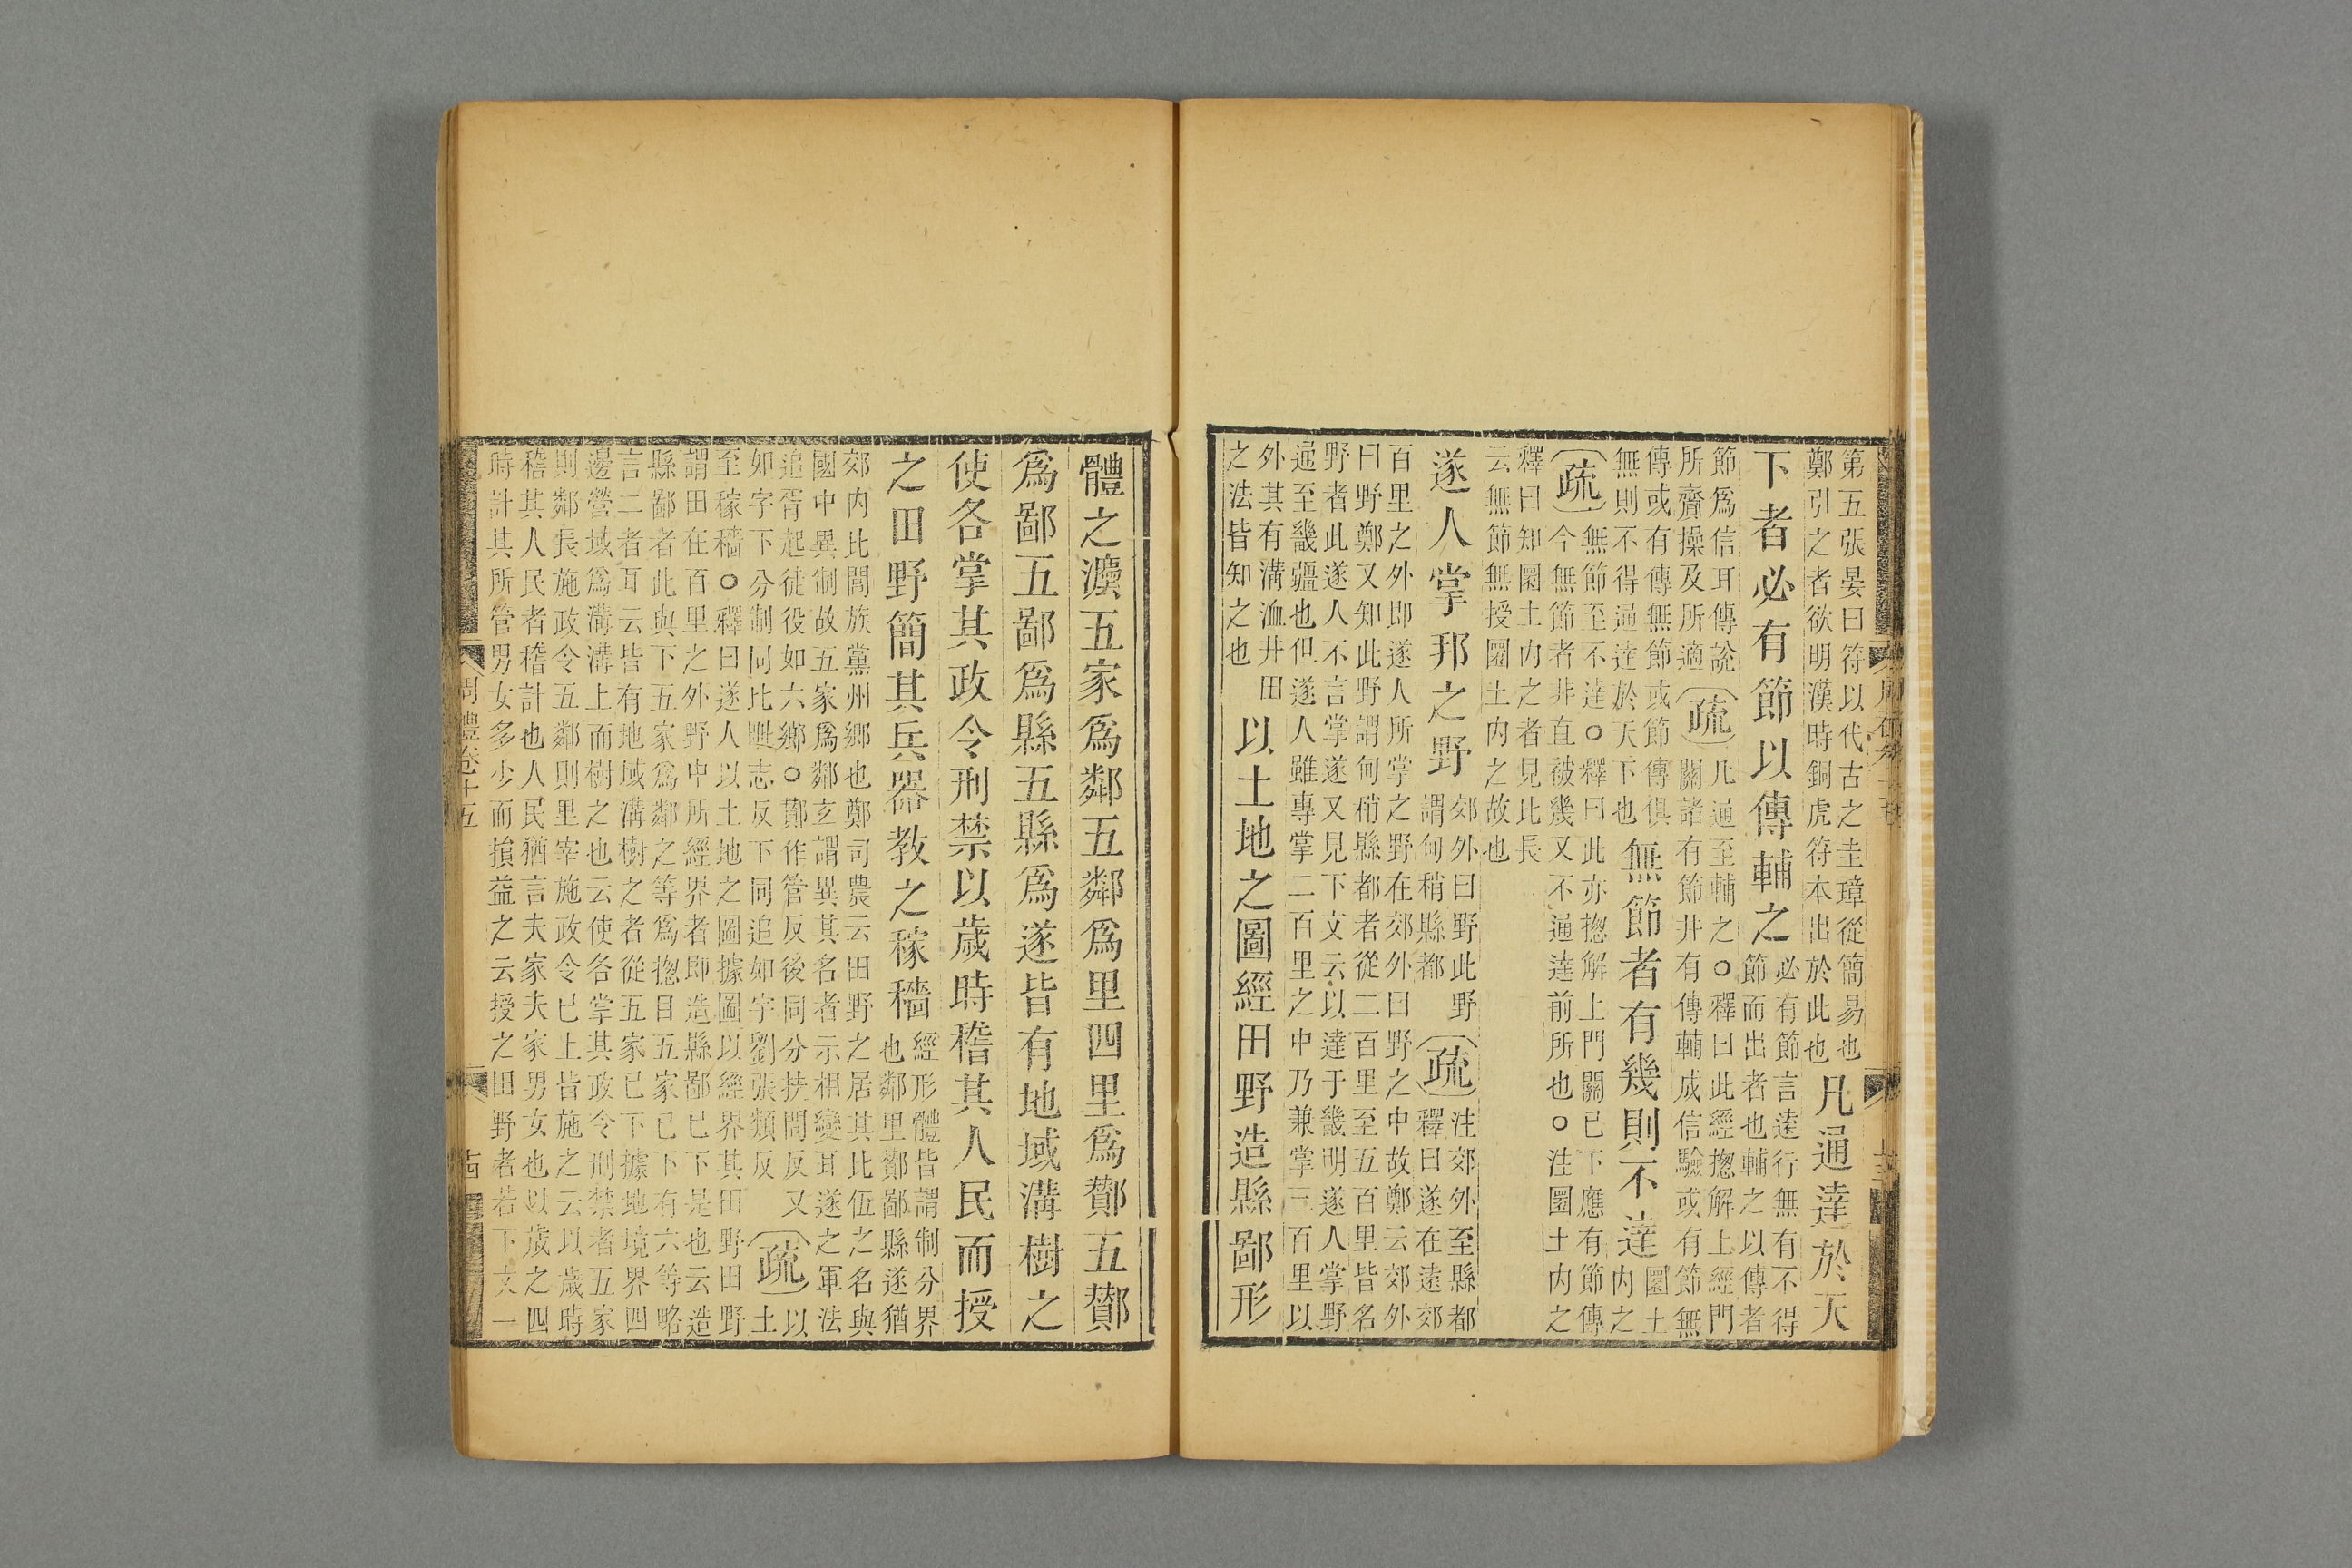 周禮卷十五
十三
第五張晏曰符以代古之圭璋從簡易也
鄭引之者欲明漢時銅虎符本出於此也
凡通達於天
下者必有節以傳輔之
必有節言遠行無有不得
節而出者也輔之以傳者
節爲信耳傳說
所齎操及所適
疏
凡通至輔之○釋曰此經揔解上經門
關諸有節并有傳輔成信驗或有節無
傳或有傳無節或節傳俱
無則不得通達於天下也
無節者有幾則不達
圜土
内之
疏
無節至不達○釋曰此亦揔解上門關已下應有節傳
今無節者非直被幾又不通達前所也○注圜土内之
釋曰知圜土内之者見比長
云無節無授圜土内之故也
遂人掌邦之野
郊外曰野此野
謂甸稍縣都
疏
注郊外至縣都
釋曰遂在遠郊
百里之外即遂人所掌之野在郊外曰野之中故鄭云郊外
曰野鄭又知此野謂甸稍縣都者從二百里至五百里皆名
野者此遂人不言掌遂又見下文云以達于畿明遂人掌野
通至畿疆也但遂人雖專掌二百里之中乃兼掌三百里以
外其有溝洫井田
之法皆知之也
以土地之圖經田野造縣鄙形
體之灋五家爲鄰五鄰爲里四里爲酇五酇
爲鄙五鄙爲縣五縣爲遂皆有地域溝樹之
使各掌其政令刑禁以歲時稽其人民而授
之田野簡其兵器教之稼穡
經形體皆謂制分界
也鄰里酇鄙縣遂猶
郊内比閭族黨州鄉也鄭司農云田野之居其比伍之名與
國中異制故五家爲鄰玄謂異其名者示相變耳遂之軍法
追胥起徒役如六鄉○酇作管反後同分扶問反又
如字下分制同比毗志反下同追如字劉張類反
疏
以土
至稼穡○釋曰遂人以土地之圖據圖以經界其田野田野
謂田在百里之外野中所經界者即造縣鄙已下是也云造
縣鄙者此與下五家爲鄰之等爲揔目五家已下有六等略
言二者耳云皆有地域溝樹之者從五家已下據地境界四
邊營域爲溝溝上而樹之也云使各掌其政令刑禁者五家
則鄰長施政令五鄰則里宰施政令已上皆施之云以歲時
稽其人民者稽計也人民猶言夫家夫家男女也以歲之四
時計其所管男女多少而損益之云授之田野者若下文一
周禮卷十五
十四